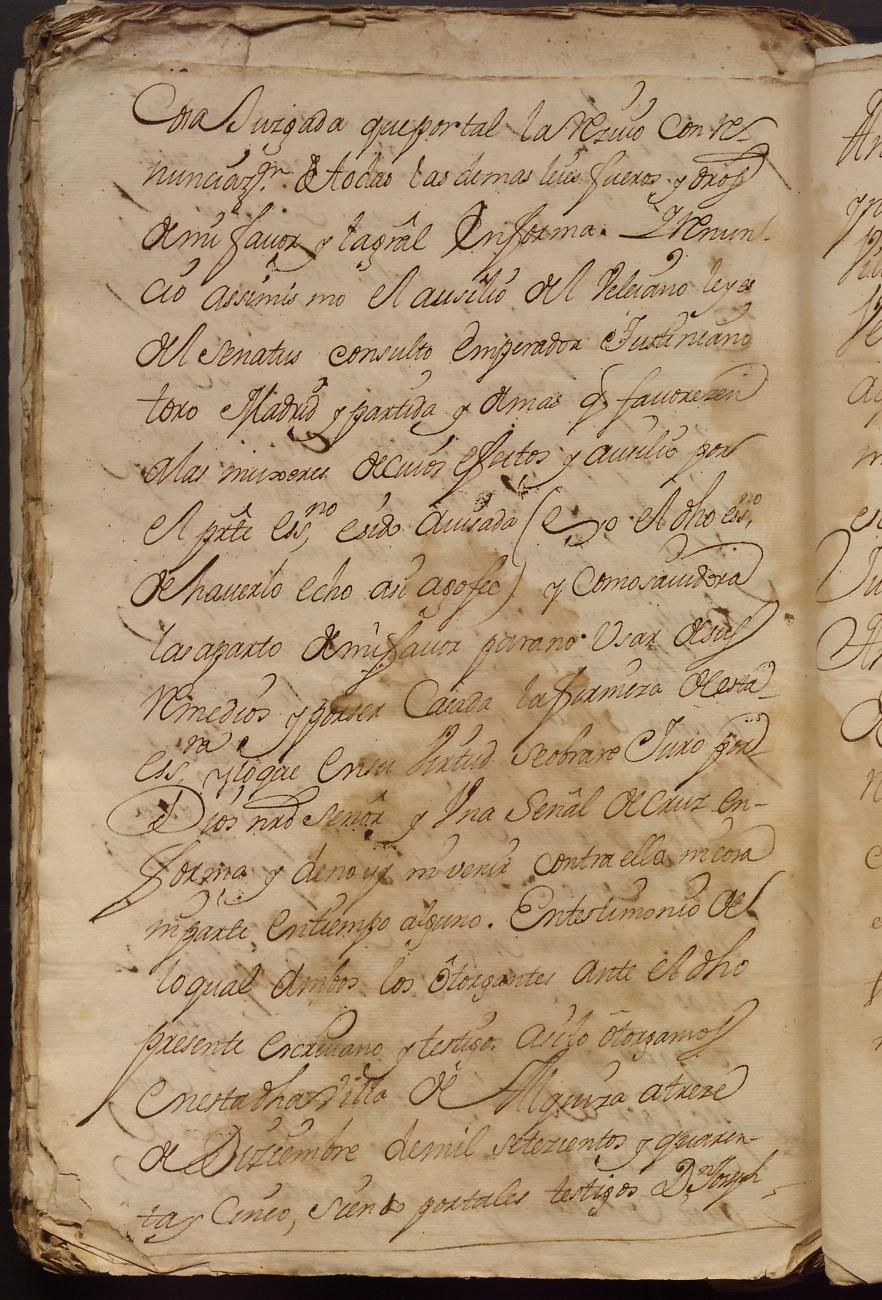 Cosa Juzgada que por tal la rezivo con re-
nunciazn. de todas las demas leies fueros y dros
de mi favor y la gral en forma. Y renun-
cio assimismo el ausilio del Veleiano leyes
del senatus consulto Emperador Justiniano
toro Madrid y partida y demas q favorezen
a las muxeres de cuios efectos y ausilio por
el prte essno, e sido avisada (e yo el dho essno,
de haverlo echo asi doy fee) y como savidora
las aparto de mi favor para no usar de sus
remedios y por ser Casada la firmeza de esta
essra, y lo que en su virtud se obrare Juro por
Dios nro señor y Una Señal de Cruz en-
forma y de no yr ni venir contra ella ni cosa
ni parte en tiempo alguno. En testimonio de
lo qual Ambos los otorgantes ante el dho
presente escrivano y testigos asi lo otorgamos
en esta dha Villa de a treze
de Diziembre de mil setezientos y quaren-
ta y Cinco, siendo por tales testigos Dn Joseph